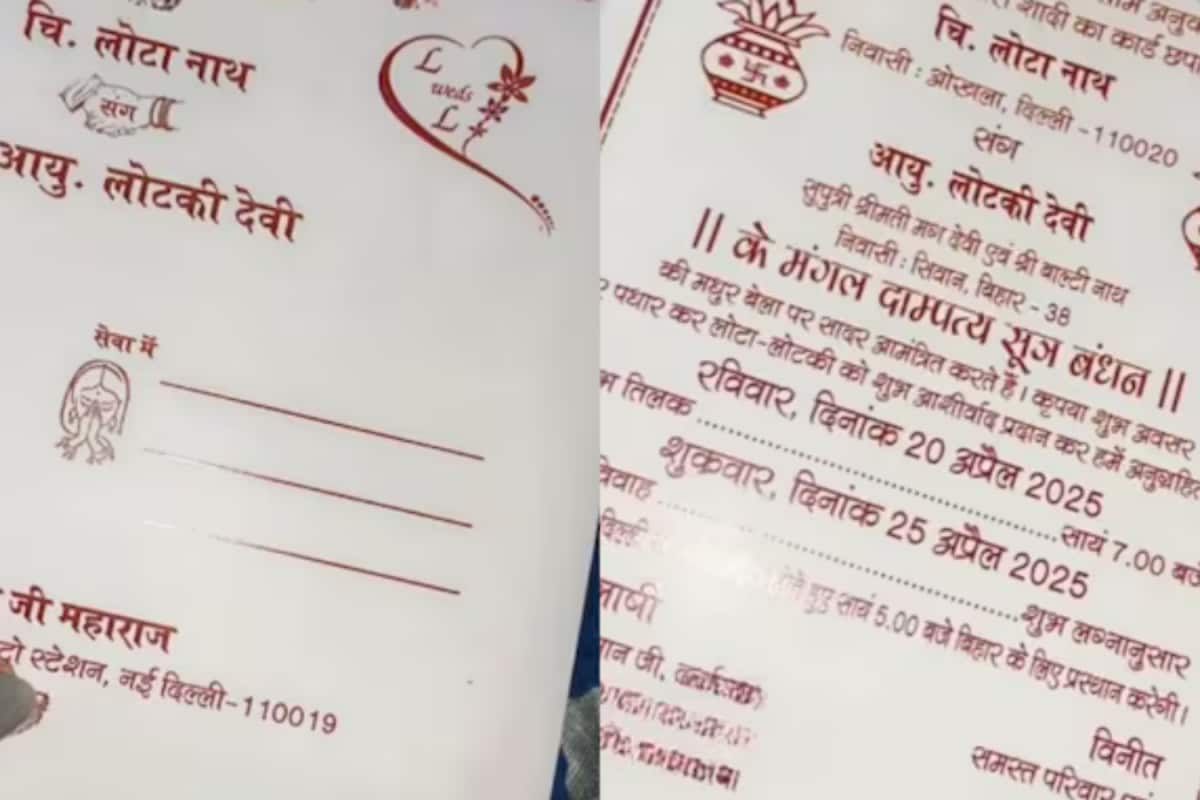 चि. लोटा नाथ
संग
आयु. लोटकी देवी
L
weds
L
सेवा में
जी महाराज
स्टेशन, नई दिल्ली-110019
शादी का कार्ड
चि. लोटा नाथ
निवासी : ओखला, दिल्ली -110020
संग
आयु. लोटकी देवी
सुपुत्री श्रीमती मग देवी एवं श्री बाल्टी नाथ
निवासी : सिवान, बिहार - 38
|| के मंगल दाम्पत्य सूत्र बंधन ||
की मधुर बेला पर सादर आमंत्रित करते हैं। कृपया शुभ अवसर
पधार कर लोटा-लोटकी को शुभ आशीर्वाद प्रदान कर हमें
रविवार, दिनांक 20 अप्रैल 2025
तिलक .......... सायं 7.00 बजे
शुक्रवार, दिनांक 25 अप्रैल 2025
.......... शुभ लग्नानुसार
हुए सायं 5.00 बजे बिहार के लिए प्रस्थान करेगी।
विनीत
समस्त परिवार